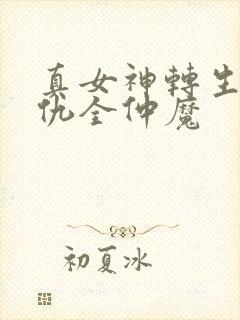 真女神轉生
仇全仲魔
初夏冰